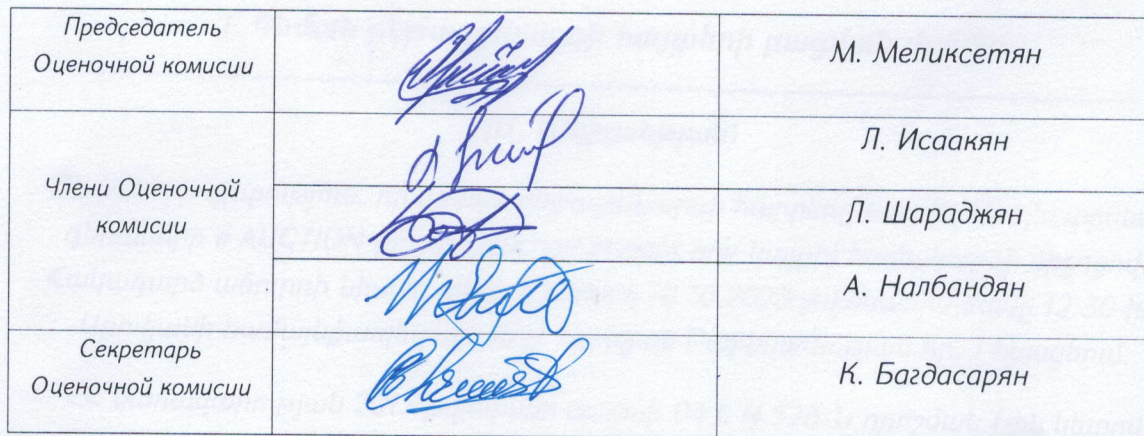 Председатель
Оценочной комисии
М. Меликсетян
Члени Оценочной
комисии
Л. Исаакян
Л. Шараджян
А. Налбандян
Секретарь
Оценочной комисии
К. Багдасарян